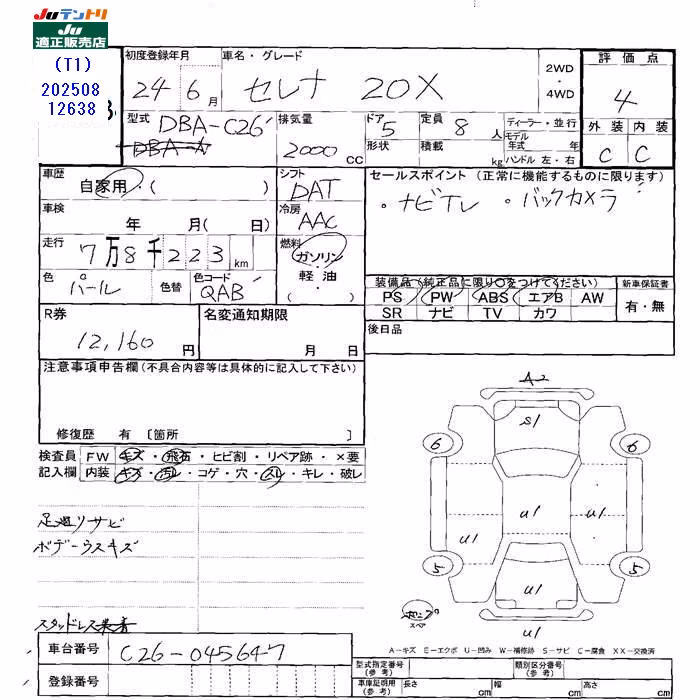 JUテントリ
JU
適正販売店
(T1)
202508
12638
初度登録年月
24 6 月
車名・グレード
セレナ 20X
2WD
・
4WD
評価点
4
外装 内装
C C
型式
DBA-C26
排気量
2000 CC
ドア 5
形状
定員 8 人
積載 kg
ディーラー・並行
モデル
年式 年
ハンドル 左・右
車歴
自家用・( )
シフト
DAT
車検
年 月( 日)
冷房
AAC
走行
7万8千223km
燃料
ガソリン
・
軽油
( )
色 パール 色替 色コード QAB
セールスポイント (正常に機能するものに限ります)
・ナビTV ・バックカメラ
装備品 (純正品に限り○をつけてください)
PS PW ABS エアB AW
SR ナビ TV カワ
新車保証書
有・無
後日品
R券
12,160 円
名変通知期限
月 日
注意事項申告欄(不具合内容等は具体的に記入して下さい)
修復歴 有 〔箇所 〕
検査員
記入欄
FW キズ・飛石・ヒビ割・リペア跡・×要
内装 キズ・汚レ・コゲ・穴・スレ・キレ・破レ
足廻りサビ
ボデーウスキズ
スタッドレス装着
A2
S1
6 6
U1 U1 U1
5 5
U1
スペア
U1
A-キズ E-エクボ U-凹み W-補修跡 S-サビ C-腐食 XX-交換済
車台番号 C26-045647
登録番号
型式指定番号
(参考)
類別区分番号
(参考)
車庫証明用
(参考)
長さ cm 幅 cm 高さ cm